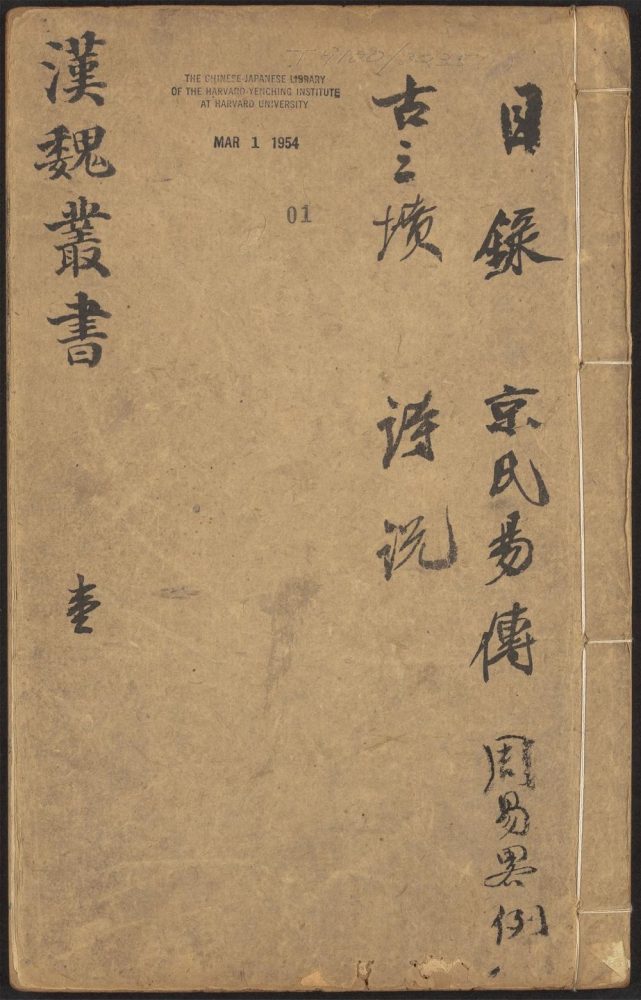 目錄 京氏易傳 周易畧例
古三墳 詩説
漢魏叢書 壹
THE CHINESE-JAPANESE LIBRARY
OF THE HARVARD-YENCHING INSTITUTE
AT HARVARD UNIVERSITY
MAR 1 1954
01